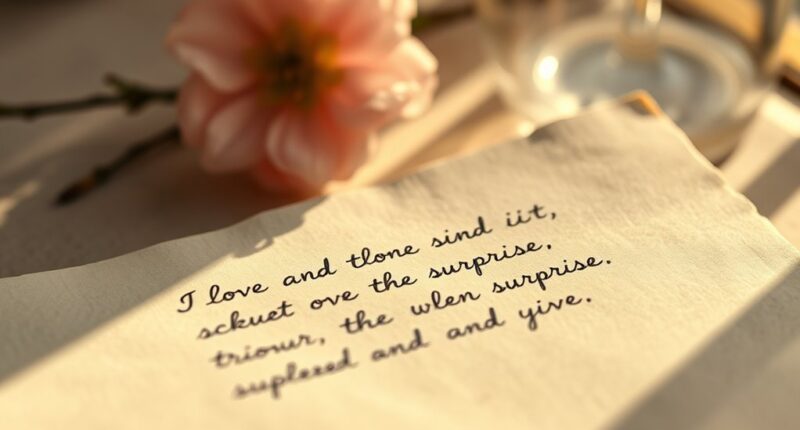 I love and tlone sind iit,
sckuet ove the surprise.
triorur, the wlen surprise.
suplezed and and yive.